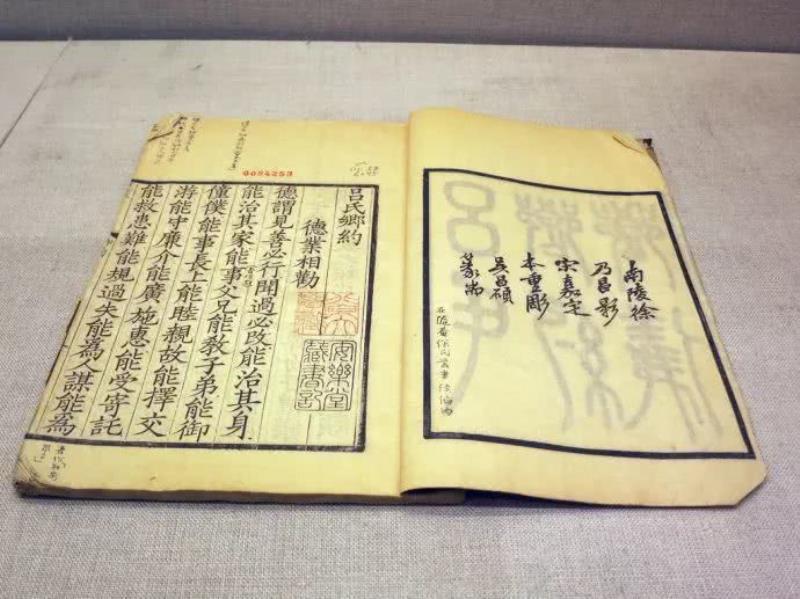 南陵徐
乃昌影
宋嘉定
本重彫
吳昌碩
篆耑
0094253
呂氏鄉約
德業相勸
德謂見善必行聞過必改能治其身
能治其家能事父兄能教子弟能御
僮僕能事長上能睦親故能擇交
游能守廉介能廣施惠能受寄託
能救患難能規過失能為人謀能為
安樂堂
藏書記